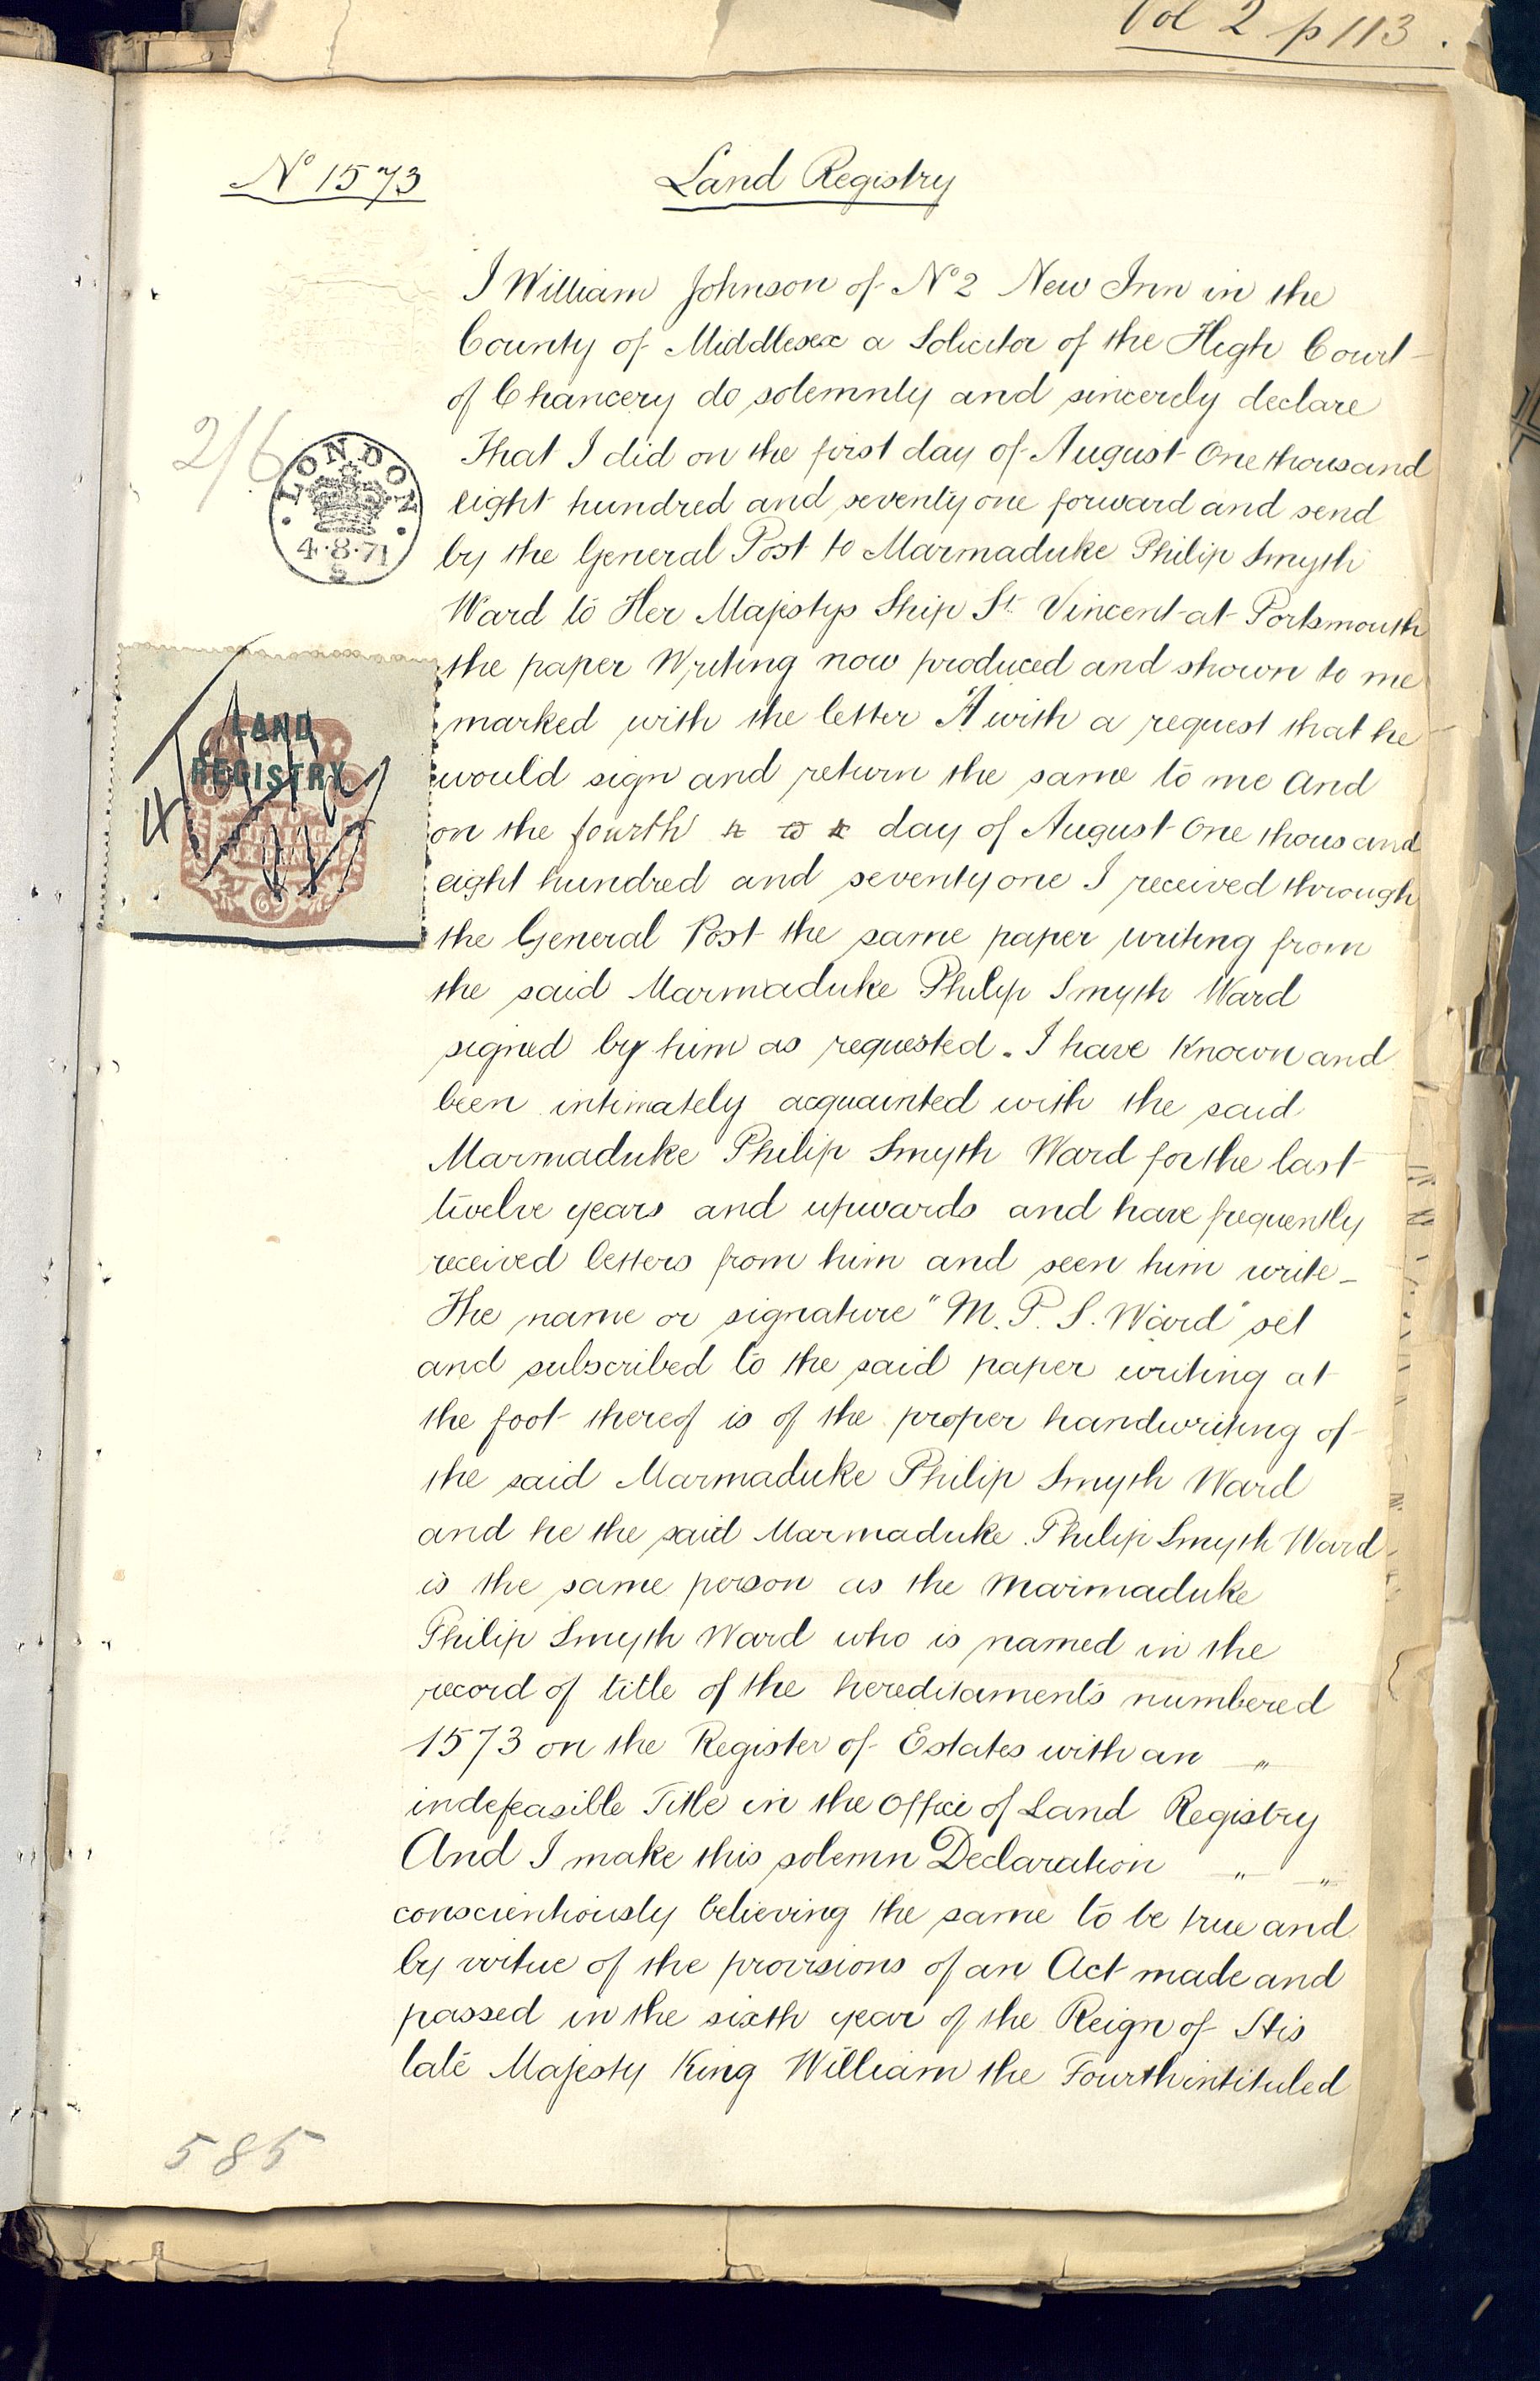 Vol 2 p 113.
No 1573
Land Registry
I William Johnson of No 2 New Inn in the
County of Middlesex a Solicitor of the High Court
of Chancery do solemnly and sincerely declare
That I did on the first day of August One thousand
eight hundred and seventy one forward and send
by the General Post to Marmaduke Philip Smyth
Ward to Her Majestys Ship St. Vincent at Portsmouth
the paper Writing now produced and shown to me
marked with the letter A with a request that he
would sign and return the same to me And
on the fourth day of August One thousand
eight hundred and seventy one I received through
the General Post the same paper writing from
the said Marmaduke Philip Smyth Ward
signed by him as requested. I have known and
been intimately acquainted with the said
Marmaduke Philip Smyth Ward for the last
twelve years and upwards and have frequently
received letters from him and seen him write
The name or signature "M. P. S. Ward" set
and subscribed to the said paper writing at
the foot thereof is of the proper handwriting of
the said Marmaduke Philip Smyth Ward
and he the said Marmaduke Philip Smyth Ward
is the same person as the Marmaduke
Philip Smyth Ward who is named in the
record of title of the hereditaments numbered
1573 on the Register of Estates with an "
indefeasible Title in the Office of Land Registry
And I make this solemn Declaration " "
conscientiously believing the same to be true and
by virtue of the provisions of an Act made and
passed in the sixth year of the Reign of His
late Majesty King William the Fourth intituled
2/6
LONDON
4.8.71
LAND
REGISTRY
585